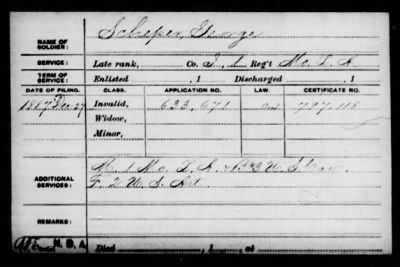 NAME OF SOLDIER: Scheper, George
SERVICE: Late rank, Co. I, 1 Reg't Mo. L. A.
TERM OF SERVICE: Enlisted , 1 Discharged , 1
DATE OF FILING. CLASS. APPLICATION NO. LAW. CERTIFICATE NO.
1887 Dec 27 Invalid, 633,678 797,118
Widow,
Minor,
ADDITIONAL SERVICES: 1 Mo. L. A.
F. 2 U. S. Art.
REMARKS:
Died , 1 , at